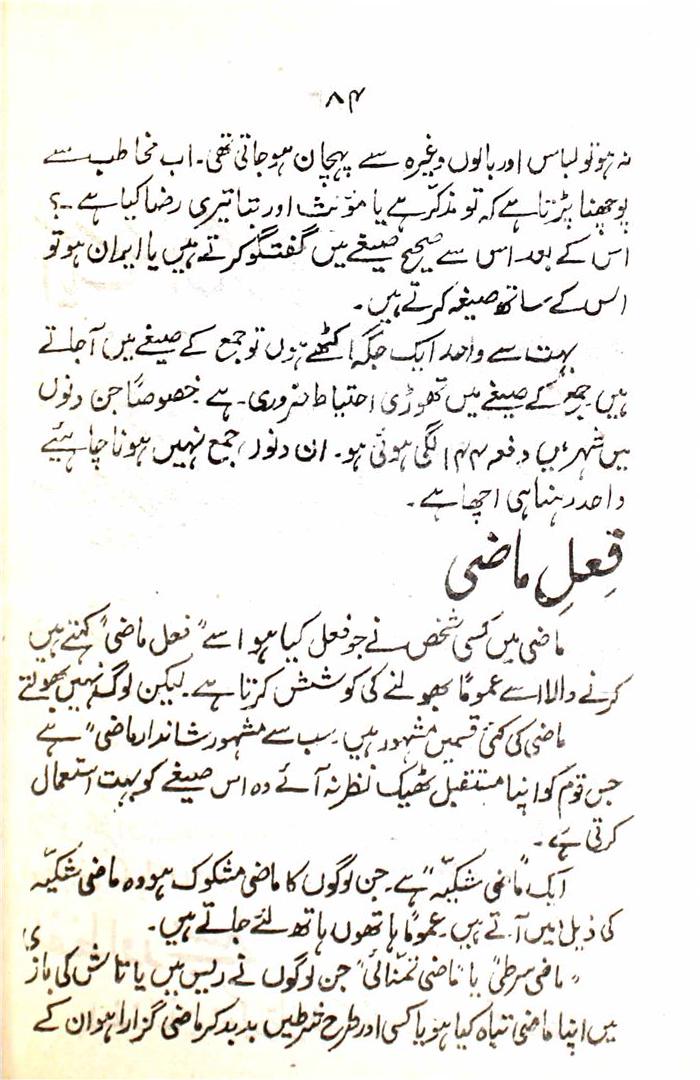 ۸۴
نہ ہو تو لباس اور بالوں وغیرہ سے پہچان ہو جاتی تھی۔ اب مخاطب سے
پوچھنا پڑتا ہے کہ تو مذکر ہے یا مؤنث اور بتا تیری رضا کیا ہے ۔؟
اس کے بعد اس سے صحیح صیغے میں گفتگو کرتے ہیں یا ایران ہو تو
اس کے ساتھ صیغہ کرتے ہیں۔
بہت سے واحد ایک جگہ اکٹھے ہوں تو جمع کے صیغے میں آ جاتے
ہیں۔ جمع کے صیغے میں تھوڑی احتیاط ضروری۔ ہے خصوصاً جن دنوں
میں شہر میں دفعہ ۱۴۴ لگی ہوئی ہو۔ ان دنوں جمع نہیں ہونا چاہیئے
واحد رہنا ہی اچھا ہے۔
فِعلِ ماضی
ماضی میں کسی شخص نے جو فعل کیا ہو اسے "فعل ماضی" کہتے ہیں
کرنے والا اسے عموماً بھولنے کی کوشش کرتا ہے۔ لیکن لوگ نہیں بھولتے
ماضی کی کئی قسمیں مشہور ہیں۔ سب سے مشہور شاندار ماضی" ہے
جس قوم کو اپنا مستقبل ٹھیک نظر نہ آئے وہ اس صیغے کو بہت استعمال
کرتی ہے۔
ایک "ماضی شکیّہ" ہے۔ جن لوگوں کا ماضی مشکوک ہو وہ ماضی شکیّہ
کی ذیل میں آتے ہیں۔ عموماً ہاتھوں ہاتھ لئے جاتے ہیں۔
"ماضی شرطی" یا "ماضی تمنّائی" جن لوگوں نے ریس میں یا تاش کی بازی
میں اپنا ماضی تباہ کیا ہو یا کسی اور طرح شرطیں بد بد کر ماضی گزارا ہو ان کے